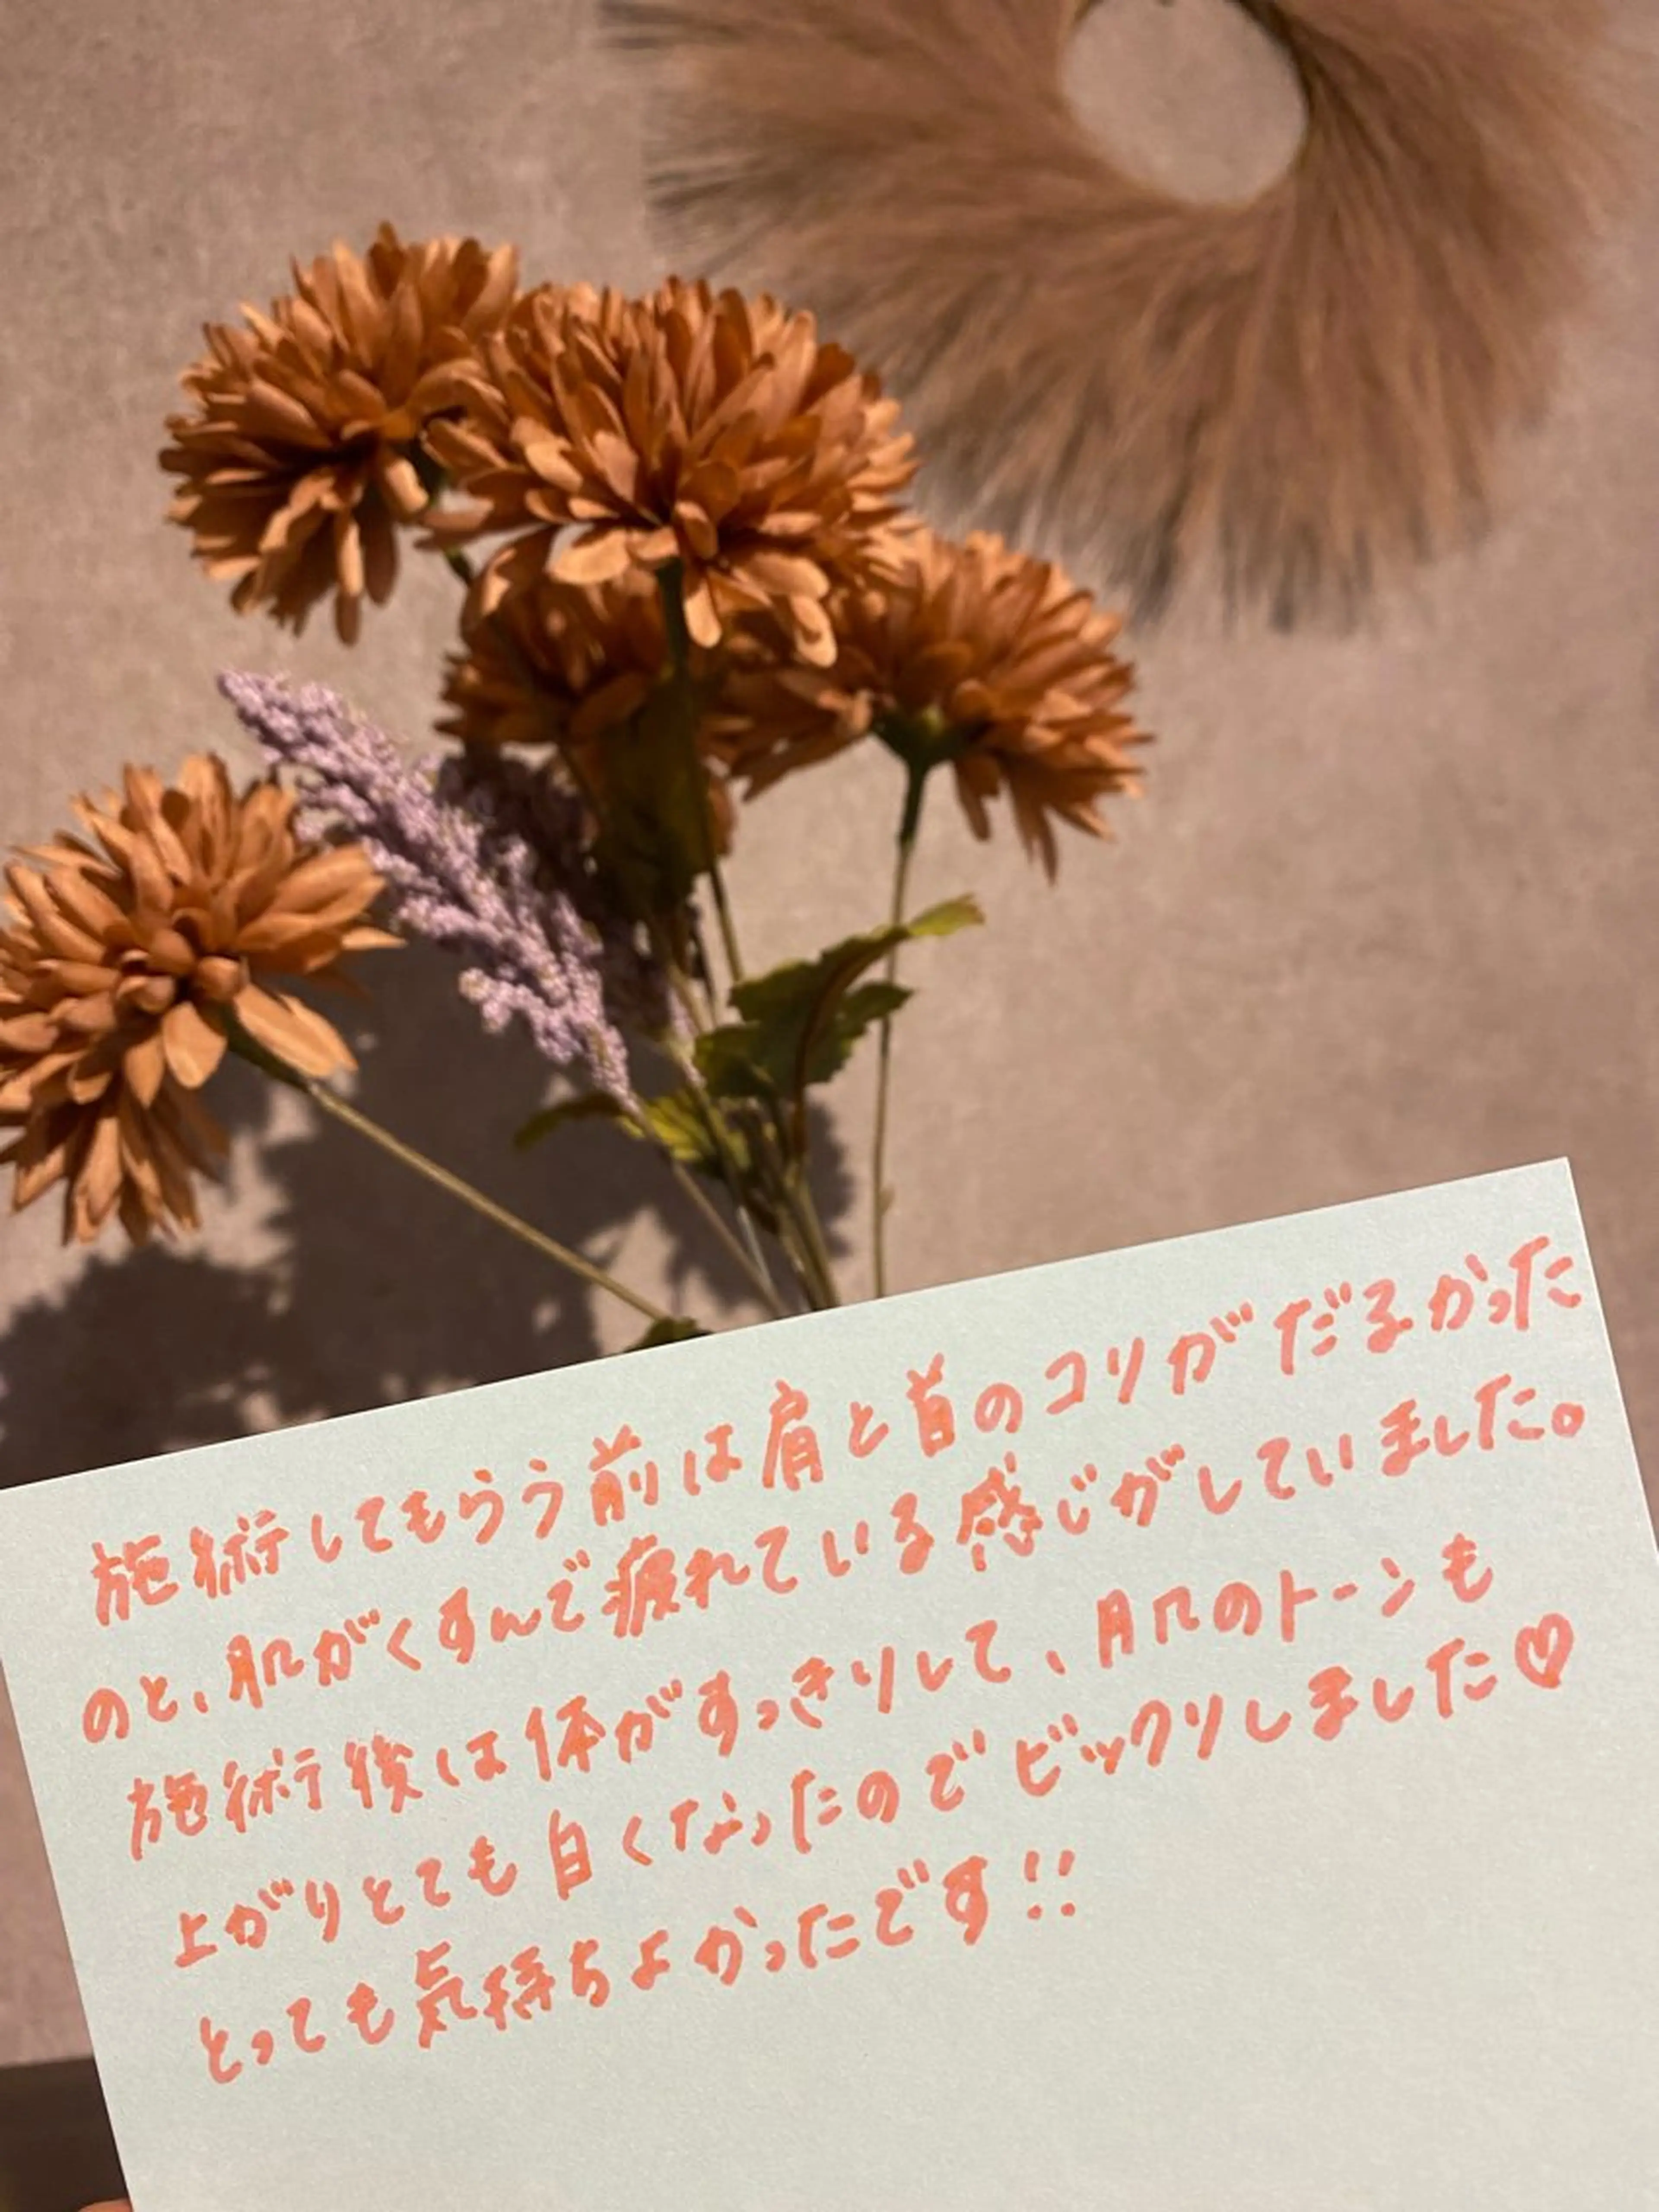 施術してもらう前は肩と首のコリがだるかった
のと、肌がくすんで疲れている感じがしていました。
施術後は体がすっきりして、肌のトーンも
上がりとても白くなったのでビックリしました♡
とっても気持ちよかったです!!